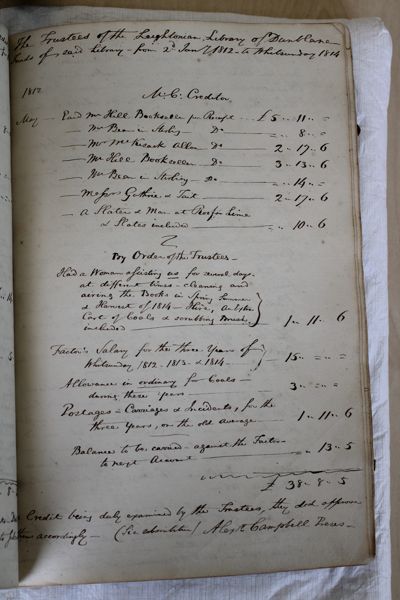 The Trustees of the Leightonian Library of Dunblane
funds of said Library - from 2d Jany 1812 - to Whitsunday 1814
1812
Mr C. Creditor
May — Paid Mr Hill Bookseller pr Receipt — £ 5 .. 11 .. =
— Mr Bean in Stirling — Do — = .. 8 .. =
— Mr McKesack Alloa Do — 2 - 17 .. 6
— Mr Hill Bookseller — Do — 3 .. 13 .. 6
— Mr Bean in Stirling Do — = .. 14 .. =
— Messrs Guthrie & Tait — 2 - 17 .. 6
— a Slater & Man at Roof Lime
& Slates included — = .. 10 .. 6
By Order of the Trustees -
Had a Woman assisting us for several days
at different times - cleaning and
aering the Books in Spring Summer
& Harvest of 1814 - Hire,
Cost of Coals & scrubbing Brush
included — 1 .. 11 .. 6
Factor's Salary for the three Years of
Whitsunday 1812 - 1813 - & 1814 — 15 .. = .. =
Allowance in ordinary for Coals
during these years — 3 .. = .. =
Postages - Carriages & Incidents, for the
three Years, on the old average — 1 .. 11 .. 6
Balance to be carried - against the Factor
to next Account — = .. 13 .. 5
£ 38 .. 8 .. 5
Credit being duly examined by the Trustees, they did approve
accordingly - (Sic subscribitur) Alexr Campbell Preses -